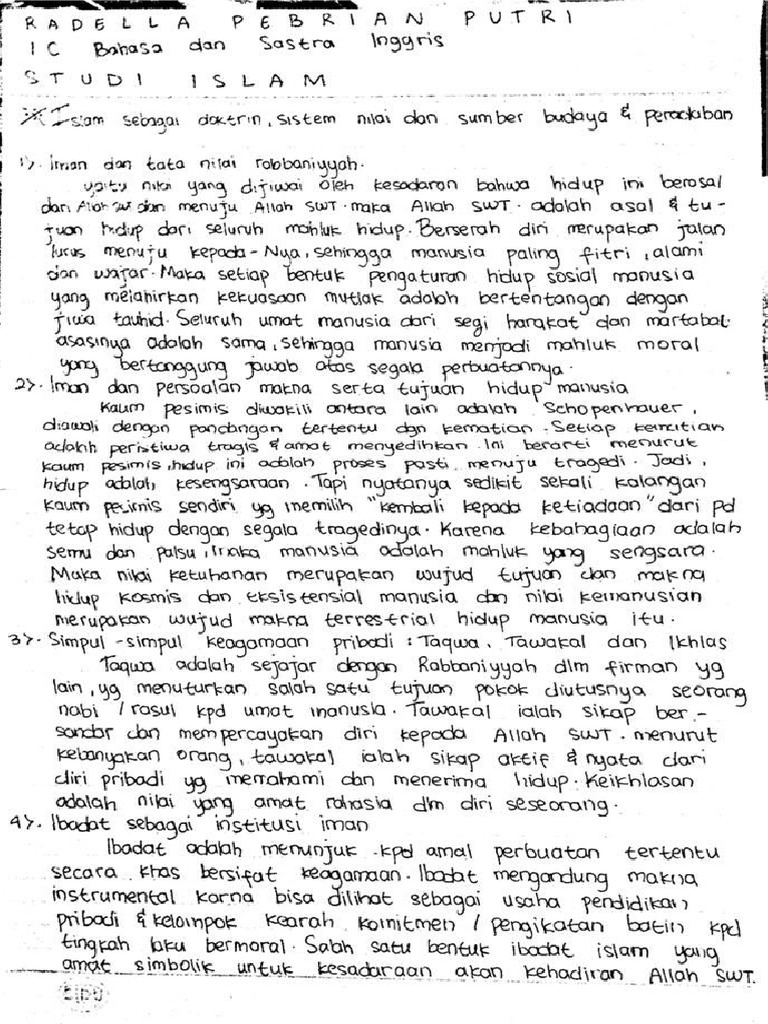 RADELLA PEBRIAN PUTRI
1C Bahasa dan Sastra Inggris
STUDI ISLAM
※ Islam sebagai doktrin, sistem nilai dan sumber budaya & peradaban
1). Iman dan tata nilai robbaniyyah.
yaitu nilai yang dijiwai oleh kesadaran bahwa hidup ini berasal
dari Allah SWT dan menuju Allah SWT. maka Allah SWT. adalah asal & tu-
juan hidup dari seluruh mahluk hidup. Berserah diri merupakan jalan
lurus menuju kepada-Nya, sehingga manusia paling fitri, alami
dan wajar. Maka setiap bentuk pengaturan hidup sosial manusia
yang melahirkan kekuasaan mutlak adalah bertentangan dengan
jiwa tauhid. Seluruh umat manusia dari segi harakat dan martabat
asasinya adalah sama, sehingga manusia menjadi mahluk moral
yang bertanggung jawab atas segala perbuatannya.
2). Iman dan persoalan makna serta tujuan hidup manusia
Kaum pesimis diwakili antara lain adalah Schopenhauer,
diawali dengan pandangan tertentu dgn kematian. Setiap kematian
adalah peristiwa tragis & amat menyedihkan. Ini berarti menurut
kaum pesimis, hidup ini adalah proses pasti menuju tragedi. Jadi,
hidup adalah kesengsaraan. Tapi nyatanya sedikit sekali kalangan
kaum pesimis sendiri yg memilih "kembali kepada ketiadaan" dari pd
tetap hidup dengan segala tragedinya. Karena kebahagiaan adalah
semu dan palsu, maka manusia adalah mahluk yang sengsara.
Maka nilai ketuhanan merupakan wujud tujuan dan makna
hidup kosmis dan eksistensial manusia dan nilai kemanusian
merupakan wujud makna terrestrial hidup manusia itu.
3). Simpul-simpul keagamaan pribadi : Taqwa, Tawakal dan Ikhlas
Taqwa adalah sejajar dengan Rabbaniyyah dlm firman yg
lain, yg menuturkan salah satu tujuan pokok diutusnya seorang
nabi / rasul kpd umat manusia. Tawakal ialah sikap ber-
sandar dan mempercayakan diri kepada Allah SWT. menurut
kebanyakan orang, tawakal ialah sikap aktif & nyata dari
diri pribadi yg memahami dan menerima hidup. Keikhlasan
adalah nilai yang amat rahasia dlm diri seseorang.
4). Ibadat sebagai institusi iman
Ibadat adalah menunjuk kpd amal perbuatan tertentu
secara khas bersifat keagamaan. Ibadat mengandung makna
instrumental karna bisa dilihat sebagai usaha pendidikan
pribadi & kelompok kearah komitmen / pengikatan batin kpd
tingkah laku bermoral. Salah satu bentuk ibadat islam yang
amat simbolik untuk kesadaraan akan kehadiran Allah SWT.